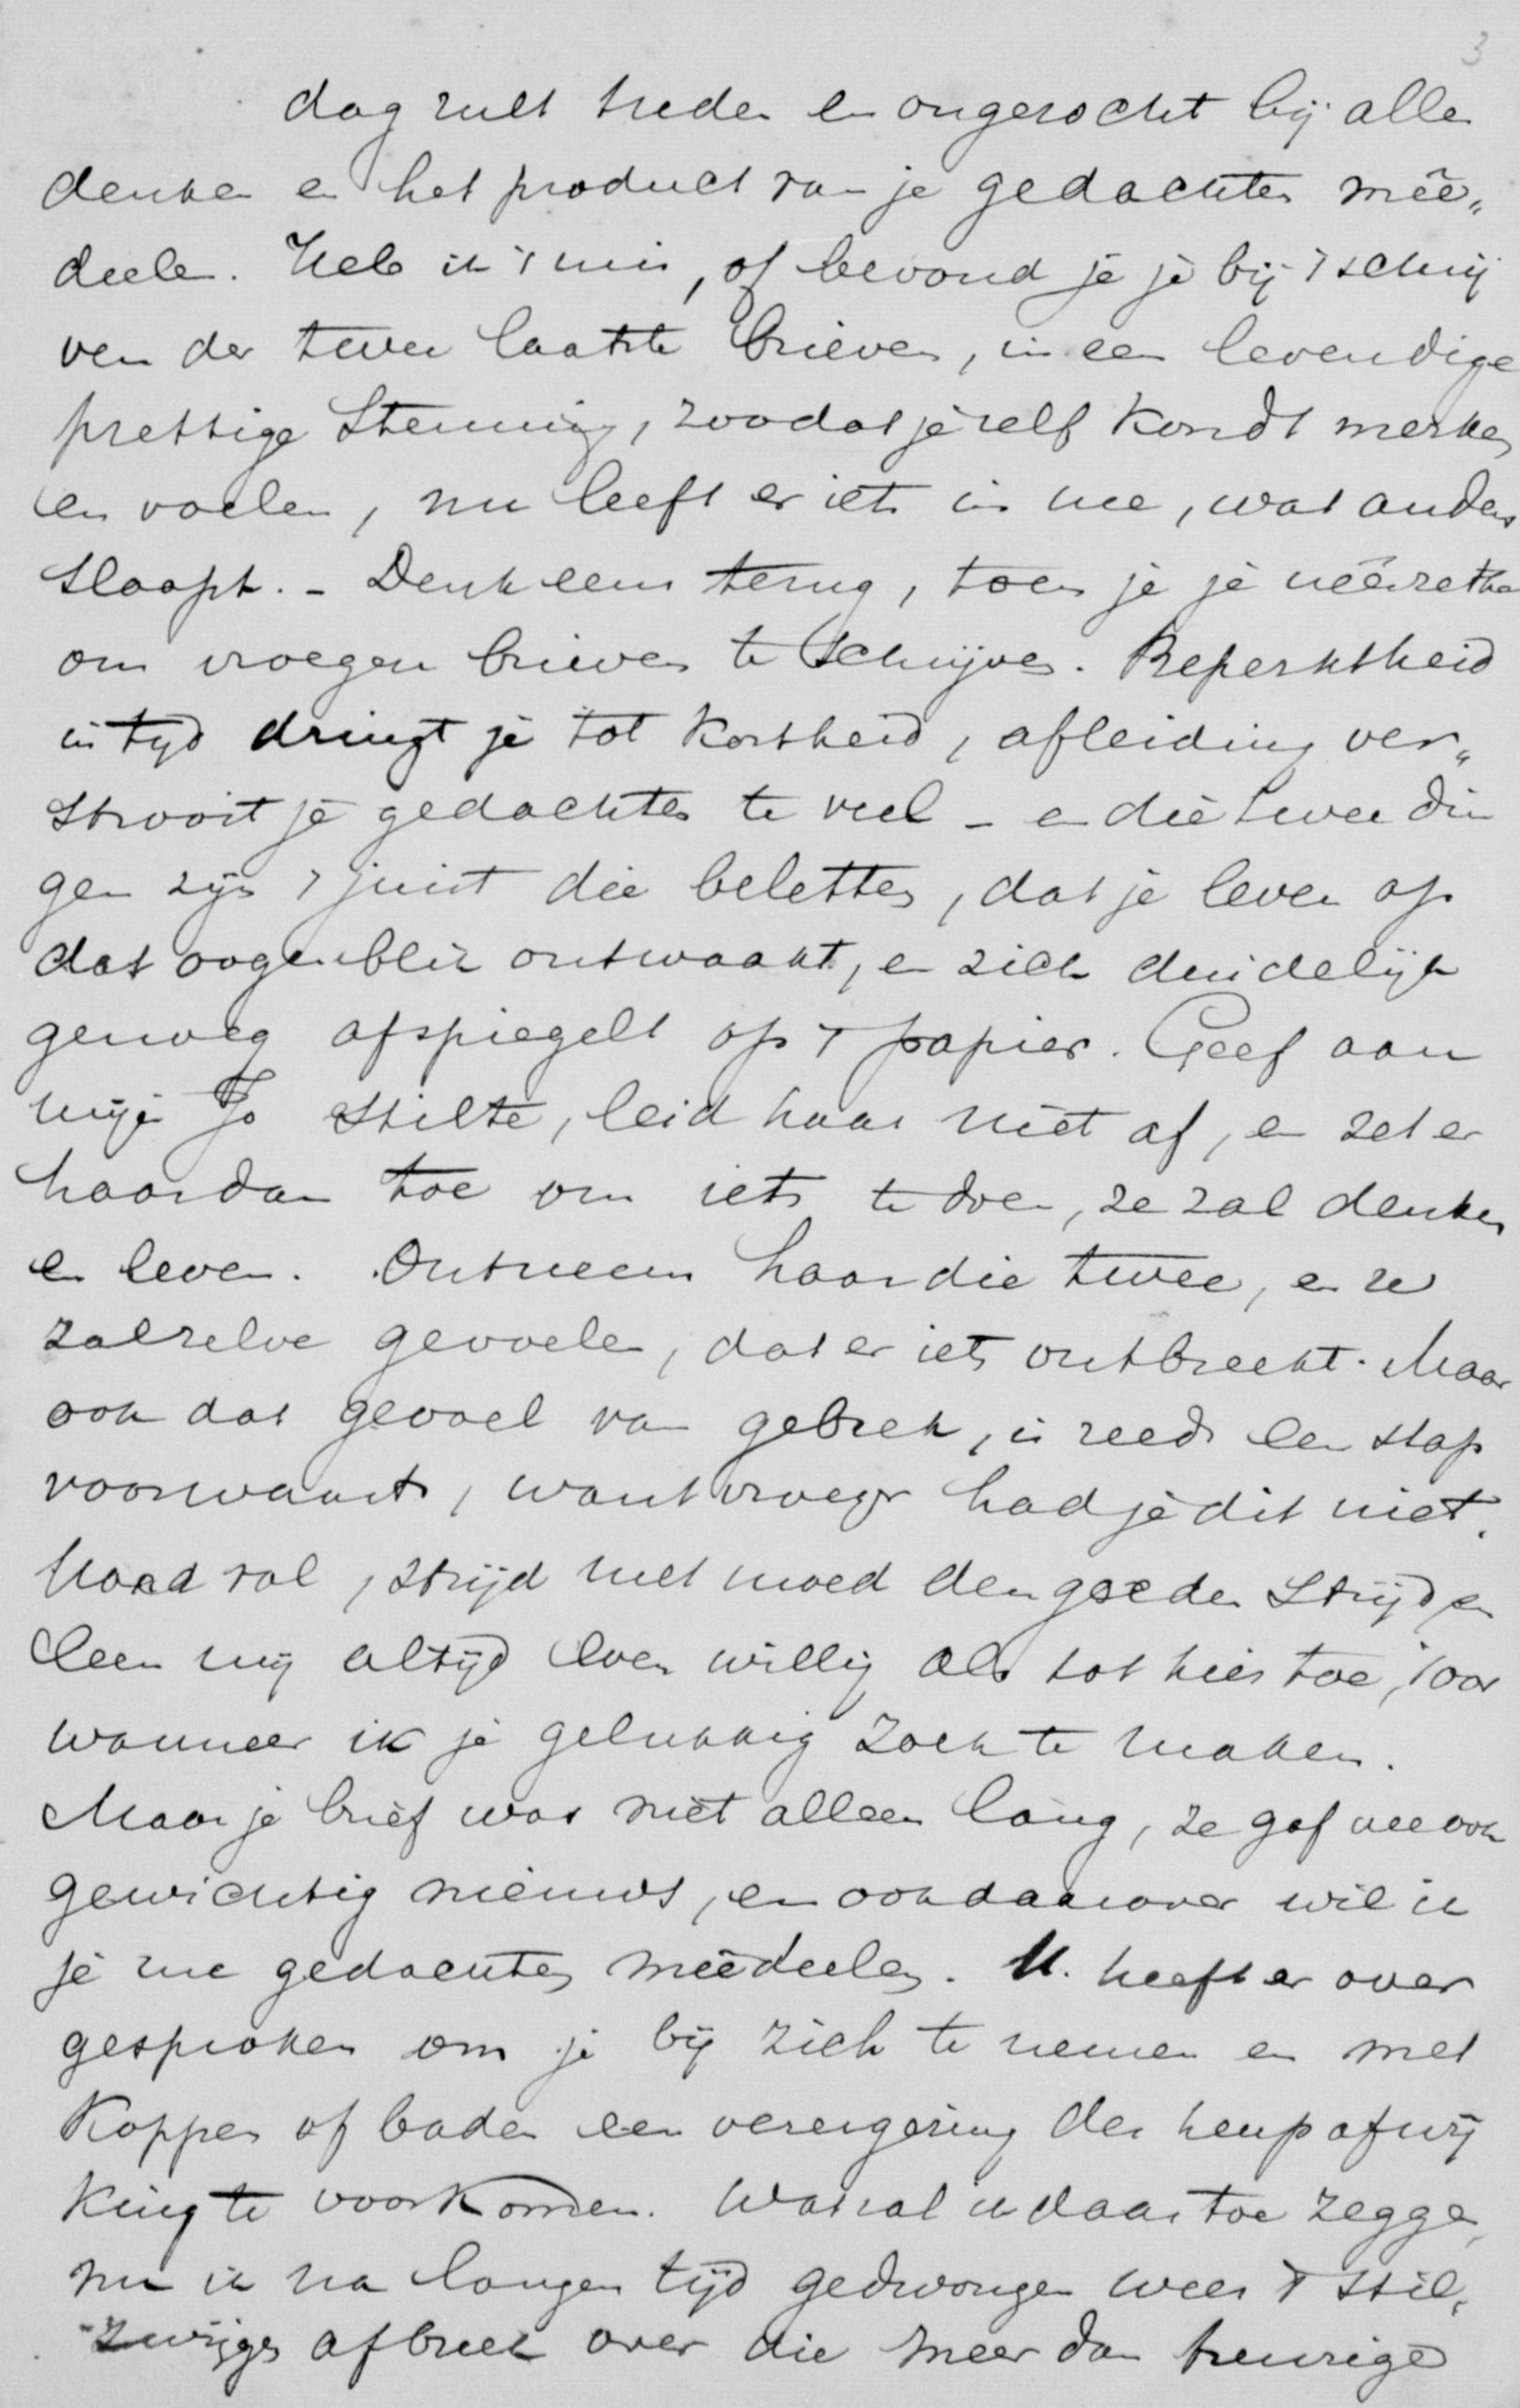 3
dag zult treden en ongezocht bij alles
denken en het product van je gedachten mêe„
deelen. Heb ik 't mis, of bevond je je bij 't schrij
ven der twee laatste brieven, in een levendige
prettige Stemming, zoodat je zelf kondt merken
en voelen, nu leeft er iets in me, wat anders
slaapt. – Denk eens terug, toen je je néérzette
om vroeger brieven te schrijven. Beperktheid
in tijd dringt je tot kortheid, afleiding ver„
strooit je gedachten te veel – en die twee din
gen zijn 't juist die beletten, dat je leven op
dat oogenblik ontwaakt, en zich duidelijk
genoeg afspiegelt op 't papier. Geef aan
mijn Jo stilte, leid haar niet af, en zet er
haar dan toe om iets te doen, ze zal denken
en leven. Ontneem haar die twee, en ze
zal zelve gevoelen, dat er iets ontbreekt. Maar
ook dat gevoel van gebrek, is reeds een stap
voorwaarts, want vroeger had je dit niet.
Houd vol, strijd met moed den goeden Strijd en
leen mij altijd even willig als tot hiertoe, 't oor
wanneer ik je gelukkig zoek te maken.
Maar je brief was niet alleen lang, ze gaf me ook
gewichtig nieuws, en ook daarover wil ik
je me gedachten meêdeelen. M. heeft er over
gesproken om je bij zich te nemen en met
Koppen of baden een verergering der heup afwij
king te voorkomen. Wat zal ik daar toe zeggen,
nu ik na langen tijd gedwongen weer 't stil„
zwijgen afbreek over die meer dan treurige